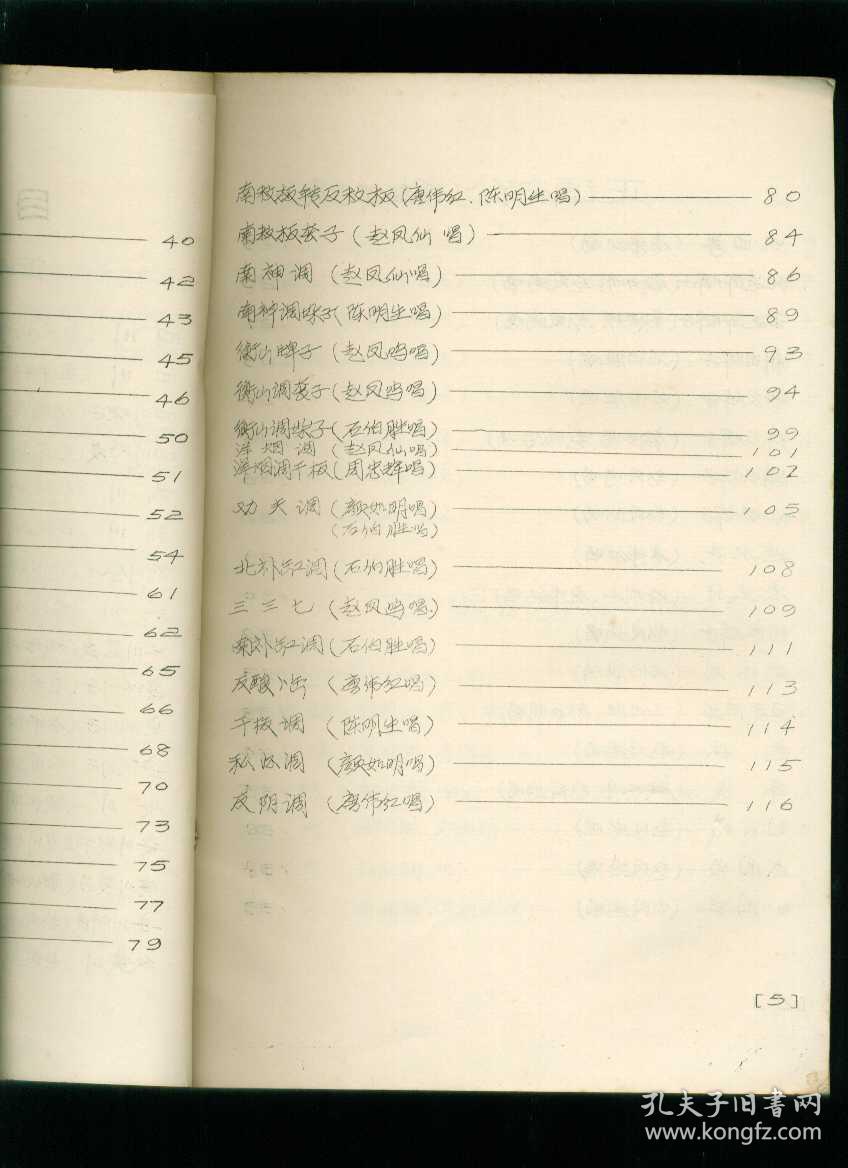 40
42
43
45
46
50
51
52
54
61
62
65
66
68
70
73
75
77
79
南救板转反救板(唐伟红、陈明生唱) 80
南救板套子(赵凤仙 唱) 84
南神调 (赵凤仙唱) 86
南神调 (陈明生唱) 89
衡山牌子 (赵凤鸣唱) 93
衡山调套子(赵凤鸣唱) 94
衡山调 子(石伯胜唱) 99
洋烟调 (赵凤仙唱) 101
洋烟调干板(周忠辉唱) 102
功夫调 (颜如明唱) 105
(石伯胜唱)
北补缸调(石伯胜唱) 108
三三七 (赵凤鸣唱) 109
南补缸调(石伯胜唱) 111
(唐伟红唱) 113
干板调 (陈明生唱) 114
调 (颜如明唱) 115
反阴调 (唐伟红唱) 116
[5]
孔夫子旧书网
www.kongfz.com